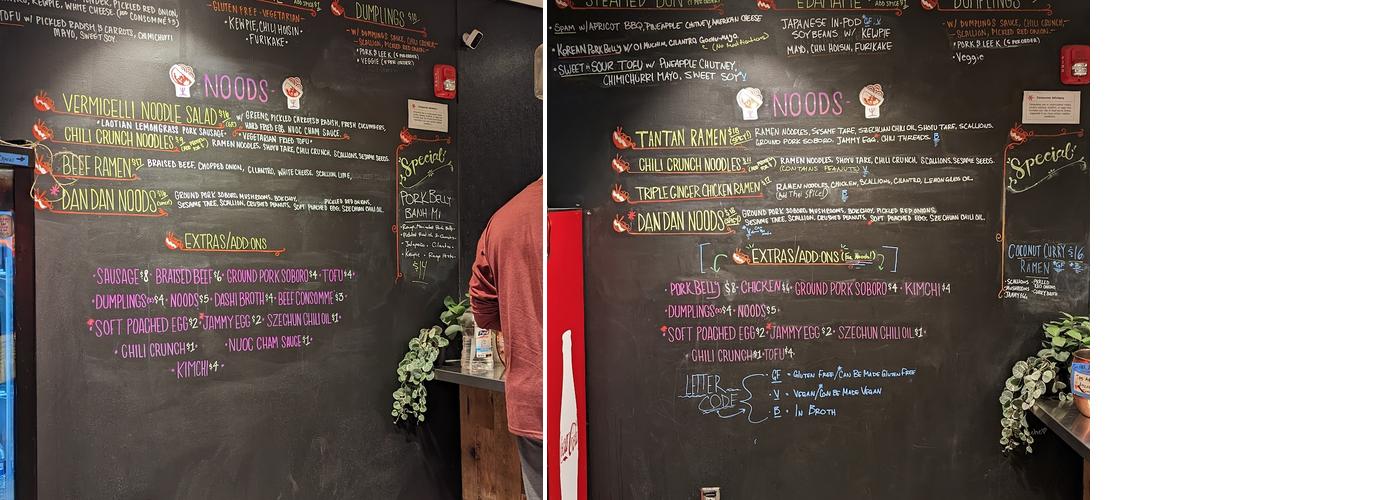 DUMPLINGS
KEWPIE, WHITE CHEESE, PICKLED RED ONION,
TOFU W/ PICKLED RADISH & CARROTS, CHIMICHURRI
MAYO, SWEET SOY
GLUTEN FREE · VEGETARIAN
· KEWPIE, CHILI HOISIN ·
· FURIKAKE ·
- W/ DUMPLINGS SAUCE, CHILI CRUNCH,
SCALLION, PICKLED RED ONION -
· PORK & LEEK (5 PER ORDER)
· VEGGIE (5 PER ORDER)
· NOODS ·
VERMICELLI NOODLE SALAD $16
W/ GREENS, PICKLED CARROTS & RADISH, FRESH CUCUMBERS,
HARD FRIED EGG, NUOC CHAM SAUCE
· LAOTIAN LEMONGRASS PORK SAUSAGE · OR · VEGETARIAN FRIED TOFU ·
CHILI CRUNCH NOODLES
RAMEN NOODLES, SHOYU TARE, CHILI CRUNCH, SCALLIONS, SESAME SEEDS.
BEEF RAMEN $17
BRAISED BEEF, CHOPPED ONION, CILANTRO, WHITE CHEESE, SCALLION, LIME,
DAN DAN NOODS
GROUND PORK SOBORO, MUSHROOMS, BOK CHOY, PICKLED RED ONIONS,
SESAME TARE, SCALLION, CRUSHED PEANUTS, SOFT POACHED EGG, SZECHUN CHILI OIL.
EXTRAS/ADD ONS
· SAUSAGE $8 · BRAISED BEEF $6 · GROUND PORK SOBORO $4 · TOFU $4 ·
· DUMPLINGS $4 · NOODS $5 · DASHI BROTH $4 · BEEF CONSOMME $3 ·
· SOFT POACHED EGG $2 · JAMMY EGG $2 · SZECHUN CHILI OIL $1 ·
· CHILI CRUNCH $1 · NUOC CHAM SAUCE $1 ·
· KIMCHI $4 ·
Special
PORK BELLY
BANH MI
$14
STEAMED BUN
EDAMAME
DUMPLINGS
· SPAM W/ APRICOT BBQ, PINEAPPLE CHUTNEY, AMERICAN CHEESE
· KOREAN PORK BELLY W/ OI MUCHIM, CILANTRO, GOCHU-MAYO
(No Modifications)
· SWEET N SOUR TOFU W/ PINEAPPLE CHUTNEY,
CHIMICHURRI MAYO, SWEET SOY V
JAPANESE IN-POD GF V
SOY BEANS W/ KEWPIE
MAYO, CHILI HOISIN, FURIKAKE
- W/ DUMPLINGS SAUCE, CHILI CRUNCH,
SCALLION, PICKLED RED ONION -
· PORK & LEEK (5 PER ORDER)
· Veggie
· NOODS ·
TANTAN RAMEN $18 (SPICY!)
RAMEN NOODLES, SESAME TARE, SZECHUAN CHILI OIL, SHOYU TARE, SCALLIONS,
GROUND PORK SOBORO, JAMMY EGG, CHILI THREADS. B
CHILI CRUNCH NOODLES $11
RAMEN NOODLES, SHOYU TARE, CHILI CRUNCH, SCALLIONS, SESAME SEEDS.
(CONTAINS PEANUTS) V
TRIPLE GINGER CHICKEN RAMEN $17
RAMEN NOODLES, CHICKEN, SCALLIONS, CILANTRO, LEMONGRASS OIL.
(All The Spice!) B
DAN DAN NOODS $18 (SPICY)
GROUND PORK SOBORO, MUSHROOMS, BOK CHOY, PICKLED RED ONIONS,
SESAME TARE, SCALLION, CRUSHED PEANUTS, SOFT POACHED EGG, SZECHUN CHILI OIL.
EXTRAS/ADD ONS (For Noods!)
· PORK BELLY $8 · CHICKEN $6 · GROUND PORK SOBORO $4 · KIMCHI $4
· DUMPLINGS $4 · NOODS $5 ·
· SOFT POACHED EGG $2 · JAMMY EGG $2 · SZECHUN CHILI OIL $1 ·
· CHILI CRUNCH $1 · TOFU $4 ·
LETTER CODE
· GF = GLUTEN FREE/CAN BE MADE GLUTEN FREE
· V = VEGAN/CAN BE MADE VEGAN
· B = IN BROTH
Special
COCONUT CURRY $16
RAMEN
· SCALLIONS
· MUSHROOMS
· JAMMY EGG
· PICKLED
RED ONIONS